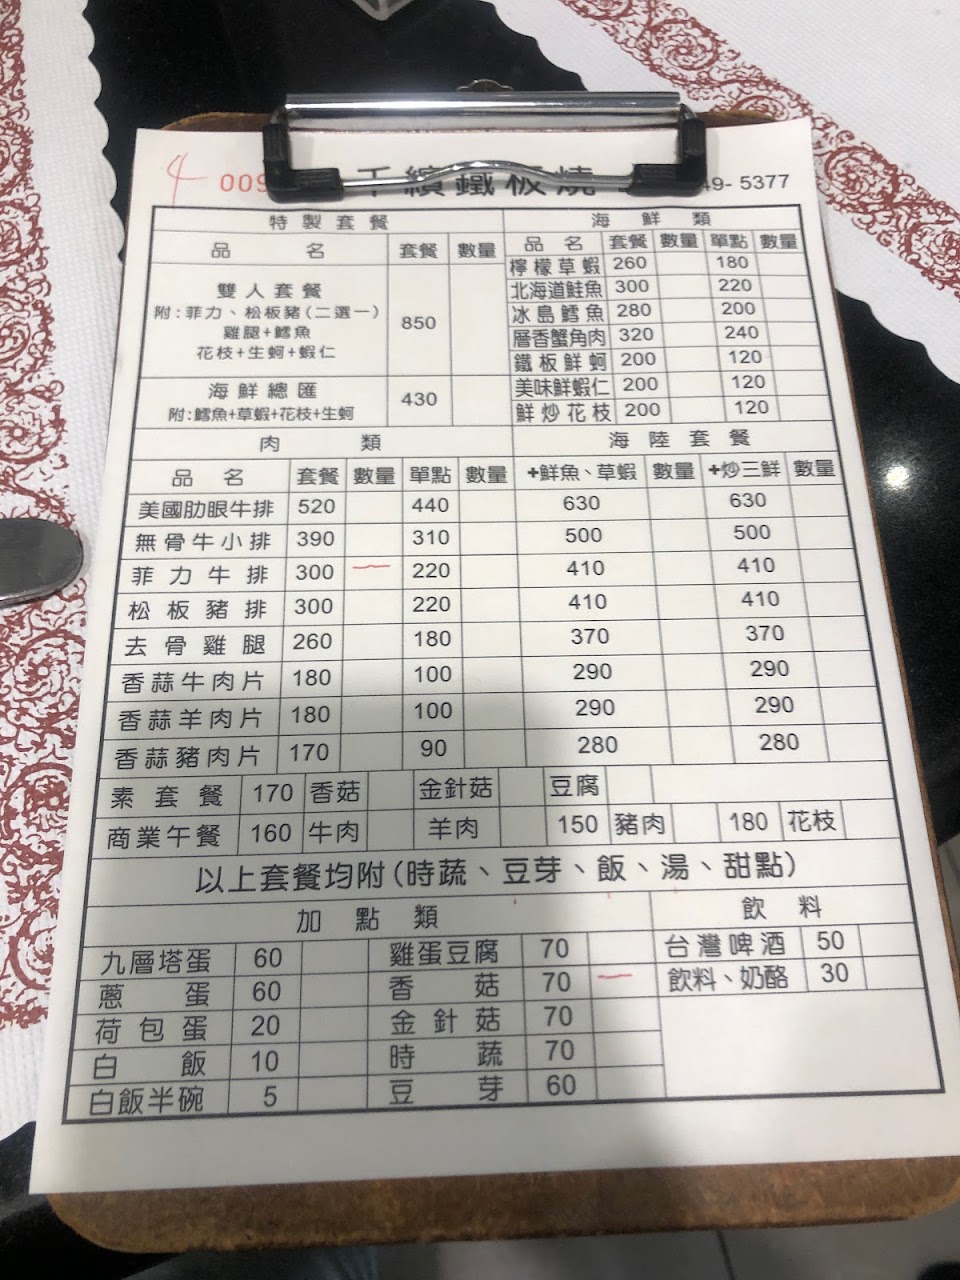 4 009 千繽鐵板燒 49-5377
特製套餐 海鮮類
品名 套餐 數量 品名 套餐 數量 單點 數量
雙人套餐 850
附:菲力、松板豬(二選一)
雞腿+鱈魚
花枝+生蚵+蝦仁
海鮮總匯 430
附:鱈魚+草蝦+花枝+生蚵
檸檬草蝦 260 180
北海道鮭魚 300 220
冰島鱈魚 280 200
層香蟹角肉 320 240
鐵板鮮蚵 200 120
美味鮮蝦仁 200 120
鮮炒花枝 200 120
肉類 海陸套餐
品名 套餐 數量 單點 數量 +鮮魚、草蝦 數量 +炒三鮮 數量
美國肋眼牛排 520 440 630 630
無骨牛小排 390 310 500 500
菲力牛排 300 一 220 410 410
松板豬排 300 220 410 410
去骨雞腿 260 180 370 370
香蒜牛肉片 180 100 290 290
香蒜羊肉片 180 100 290 290
香蒜豬肉片 170 90 280 280
素套餐 170 香菇 金針菇 豆腐
商業午餐 160 牛肉 羊肉 150 豬肉 180 花枝
以上套餐均附(時蔬、豆芽、飯、湯、甜點)
加點類 飲料
九層塔蛋 60 雞蛋豆腐 70 台灣啤酒 50
蔥蛋 60 香菇 70 一 飲料、奶酪 30
荷包蛋 20 金針菇 70
白飯 10 時蔬 70
白飯半碗 5 豆芽 60